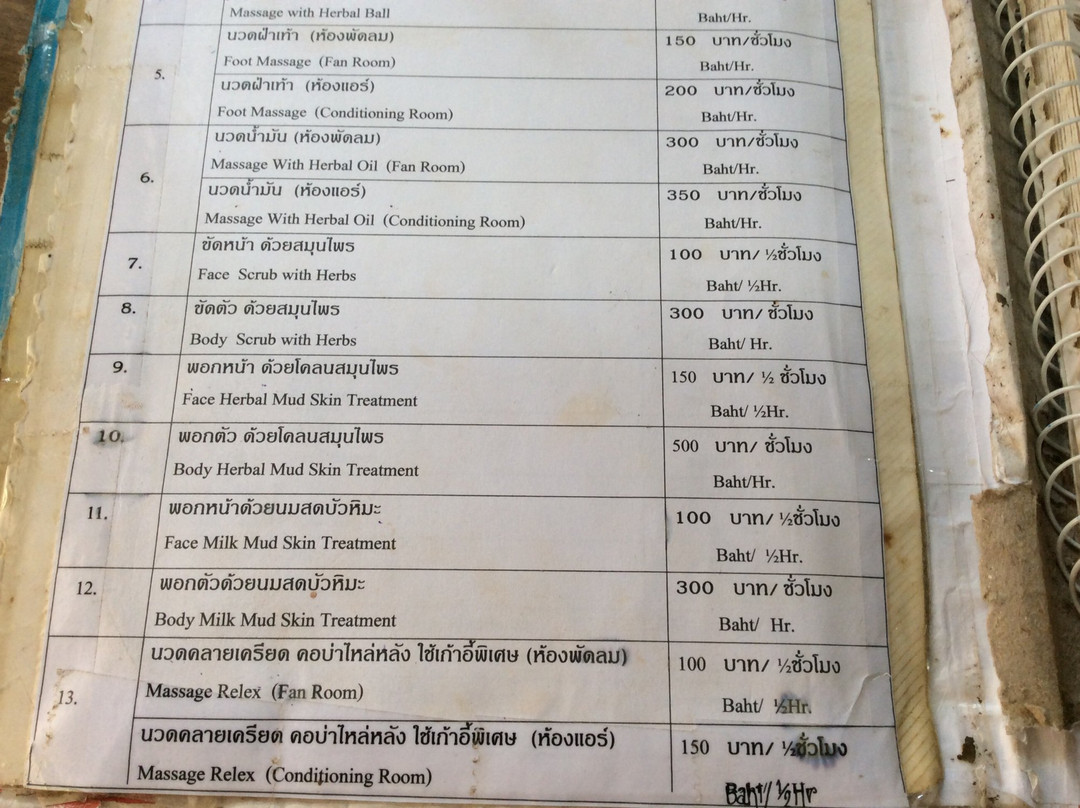 Massage with Herbal Ball Baht/Hr.
5.
นวดฝ่าเท้า (ห้องพัดลม) 150 บาท/ชั่วโมง
Foot Massage (Fan Room) Baht/Hr.
นวดฝ่าเท้า (ห้องแอร์) 200 บาท/ชั่วโมง
Foot Massage (Conditioning Room) Baht/Hr.
6.
นวดน้ำมัน (ห้องพัดลม) 300 บาท/ชั่วโมง
Massage With Herbal Oil (Fan Room) Baht/Hr.
นวดน้ำมัน (ห้องแอร์) 350 บาท/ชั่วโมง
Massage With Herbal Oil (Conditioning Room) Baht/Hr.
7.
ขัดหน้า ด้วยสมุนไพร 100 บาท/ ½ชั่วโมง
Face Scrub with Herbs Baht/ ½Hr.
8.
ขัดตัว ด้วยสมุนไพร 300 บาท/ ชั่วโมง
Body Scrub with Herbs Baht/ Hr.
9.
พอกหน้า ด้วยโคลนสมุนไพร 150 บาท/ ½ ชั่วโมง
Face Herbal Mud Skin Treatment Baht/ ½Hr.
10.
พอกตัว ด้วยโคลนสมุนไพร 500 บาท/ ชั่วโมง
Body Herbal Mud Skin Treatment Baht/Hr.
11.
พอกหน้าด้วยนมสดบัวหิมะ 100 บาท/ ½ชั่วโมง
Face Milk Mud Skin Treatment Baht/ ½Hr.
12.
พอกตัวด้วยนมสดบัวหิมะ 300 บาท/ ชั่วโมง
Body Milk Mud Skin Treatment Baht/ Hr.
13.
นวดคลายเครียด คอบ่าไหล่หลัง ใช้เก้าอี้พิเศษ (ห้องพัดลม) 100 บาท/ ½ชั่วโมง
Massage Relex (Fan Room) Baht/ ½Hr.
นวดคลายเครียด คอบ่าไหล่หลัง ใช้เก้าอี้พิเศษ (ห้องแอร์) 150 บาท/ ½ชั่วโมง
Massage Relex (Conditioning Room) Baht/ ½Hr